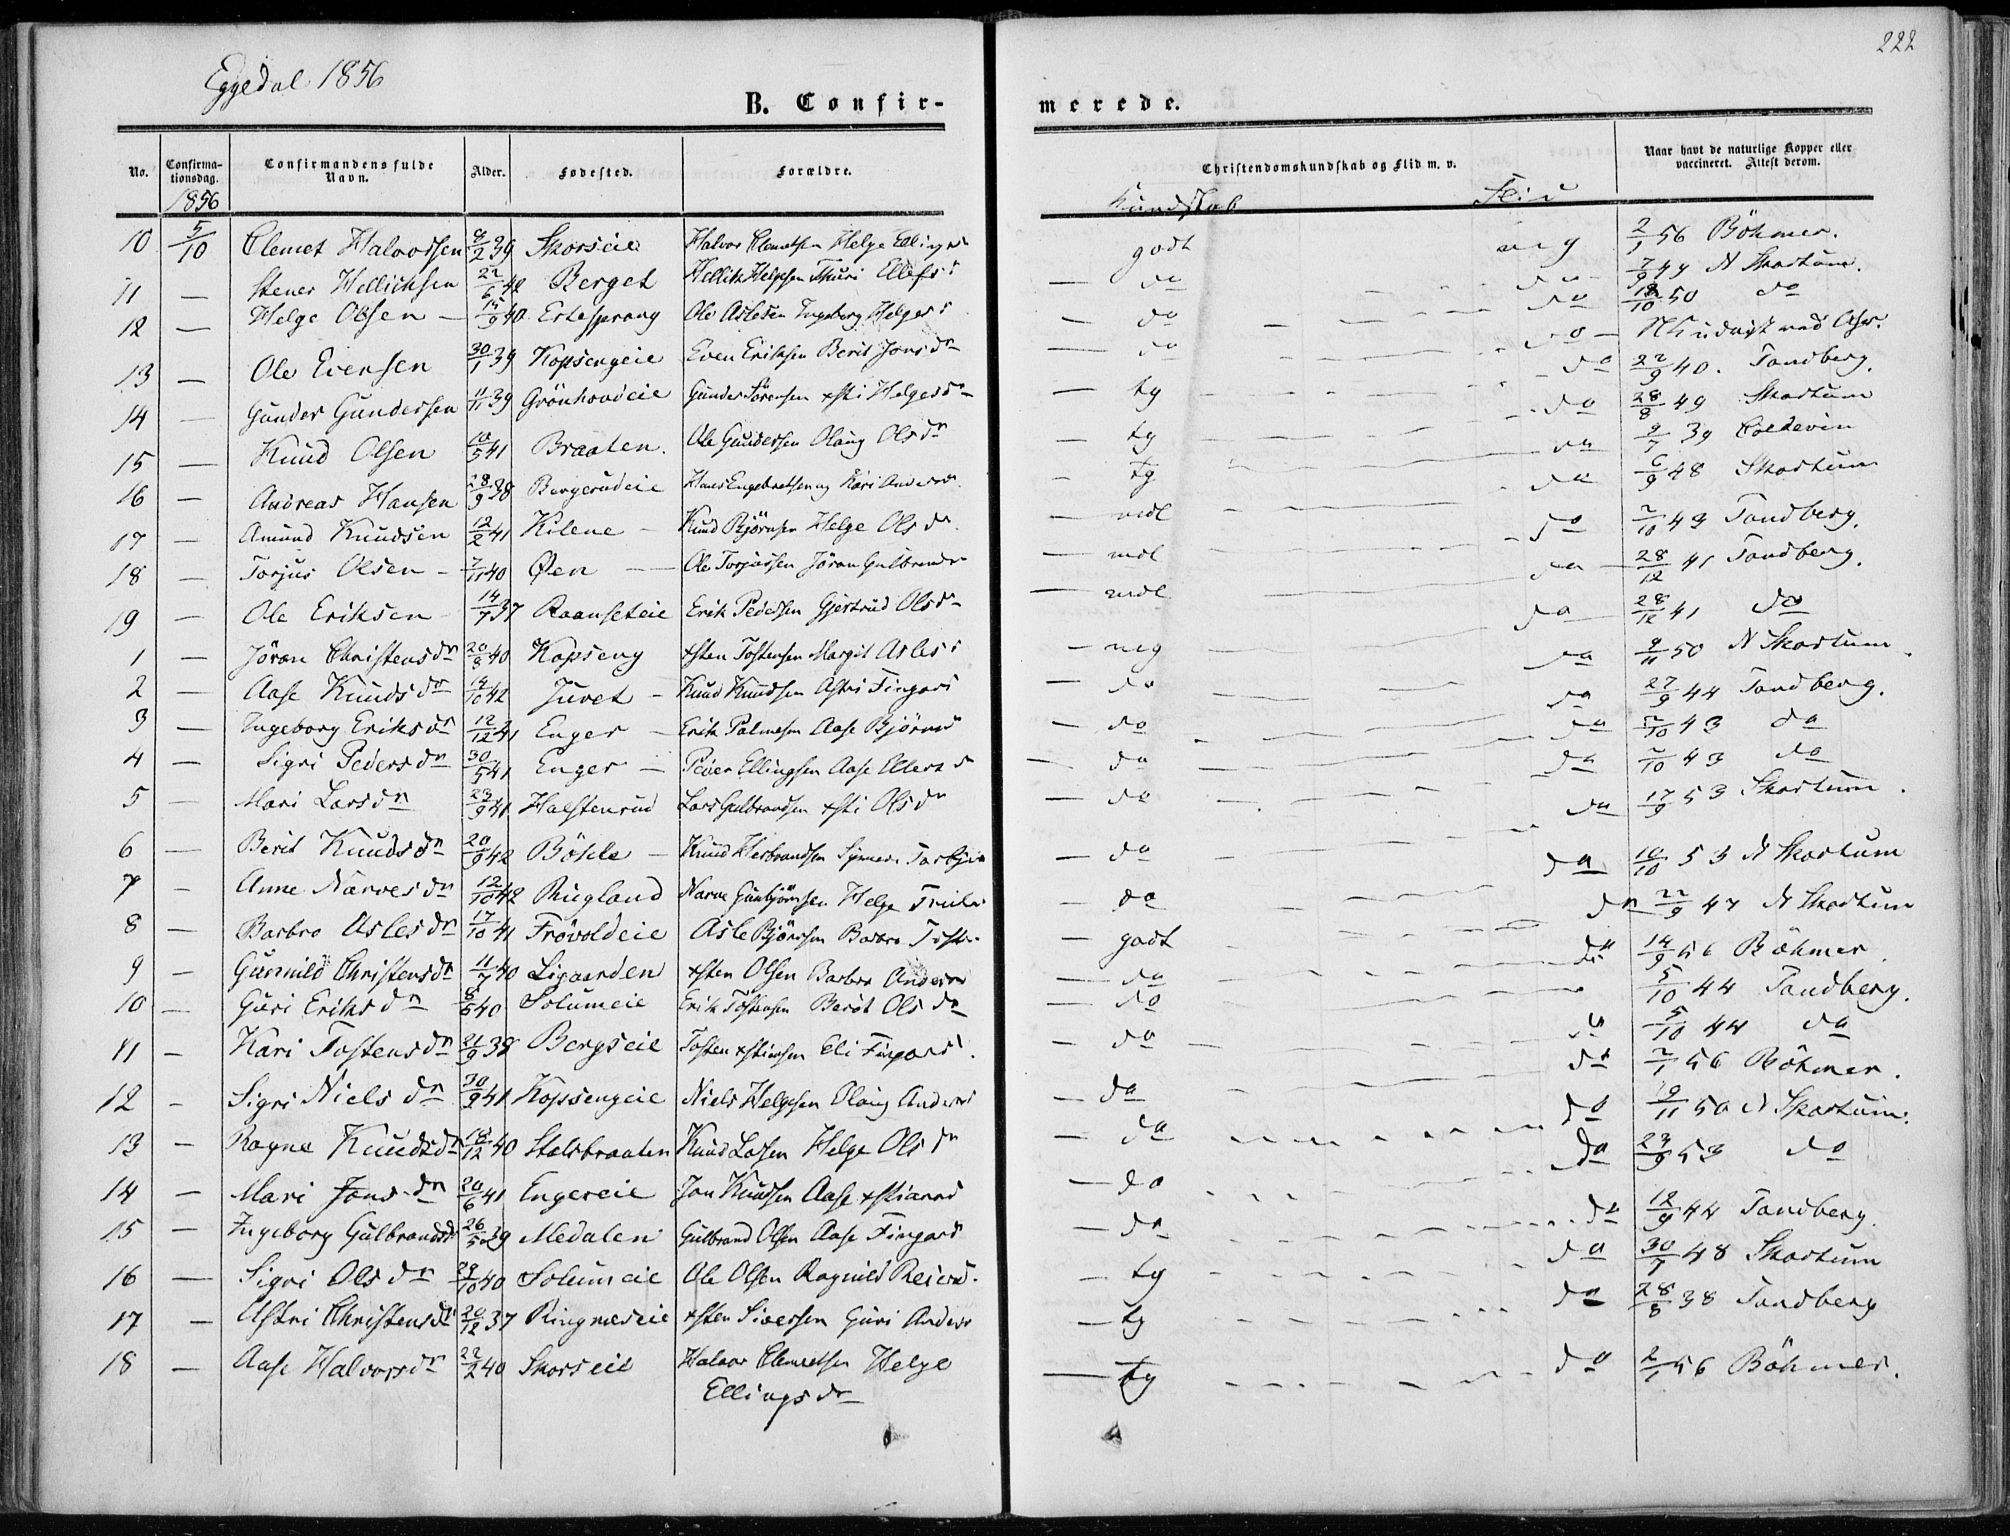 222
Eggedal 1856
B. Confir-
merede.
No. Confirma-tionsdag. Confirmandens fulde Navn. Alder. Fødested. Forældre. Christendomskundskab og Flid m. v. Naar havt de naturlige Kopper eller vaccineret. Attest derom.
1856 Kundskab Flid
10 5/10 Clemet Halvorsen 39 Skorseie Halvor Clemetsen Helge Ellingsd godt mg 2/1 56 Böhmer.
11 — Stener Hellichsen 22/6 40 Berget Hellik Helgesen Thuri Ellefsd — do do 7/9 49 N Skartum.
12 — Helge Olsen — 15/9 40 Ertesprang Ole Aslesen Ingeborg Helgesd — do do 18/10 50 do
13 — Ole Evensen 30/1 39 Kopsengeie Even Eriksen Berit Jonsdr — do do
14 — Gunder Gundersen 11/11 39 Grönhovdeie Gunder Sørensen xsti Helgesdr — tg do 22/9 40. Tandberg.
15 — Knud Olsen 10/5 41 Braaten. Ole Gundersen Olaug Olsdr — tg do 28/8 49 Skartum
16 — Andreas Hansen 28/9 38 Bergerudeie Hans Engebretsen og Kari Andersdr — tg do 9/7 39 Coldevin
17 — Amund Knudsen 12/2 41 Kilene — Knud Bjørnsen Helge Olsdr — mdl do 6/9 48 Skartum
18 — Torjus Olsen — 7/11 40 Øen — Ole Torjussen Jöran Gulbrandsdr — mdl do 2/10 43 Tandberg.
19 — Ole Eriksen 14/7 37 Raanseteie Erik Pedersen Gjertrud Olsdr — mdl do 28/12 41 Tandberg.
1 — Jöran Christensdr 20/9 40 Kopseng xsten Tostensen Margit Aslesd — mg do 28/12 41 do
2 — Aase Knudsdr 14/10 42 Juvet — Knud Knudsen Astri Fingarsd — do do 9/11 50 N Skartum.
3 — Ingeborg Eriksdr 12/12 41 Enger — Erik Palmesen Aase Bjørnsd — do do 27/9 44 Tandberg.
4 — Sigri Pedersdr 30/5 41 Enger — Peder Ellingsen Aase Ellersd — do do 2/10 43 do
5 — Mari Larsdr 23/9 41 Halstenrud Lars Gulbrandsen xsti Olsdr — do do 2/10 43 do
6 — Berit Knudsdr 20/9 42 Böhle — Knud Herbrandsen Synneve — do do 17/9 53 Skartum.
7 — Anne Narvesdr 12/10 42 Rugland Narve Gunbjörnsen Helge — do da 10/10 53 N Skartum
8 — Barbro Aslesdr 17/10 41 Frövoldeie Asle Bjørnsen Barbro — godt do 22/9 47 N Skartum
9 — Gunnild Christensdr 11/7 40 Ligaarden xsten Olsen Barbro Andersd — do do 14/9 56 Böhmer.
10 — Guri Eriksdr 40 Solumeie Erik Tostensen Berit Olsdr — do 5/10 44 Tandberg.
11 — Kari Tostensdr 21/9 38 Bergseie Tosten xstiansen Eli Fingarsd. — do do 5/10 44 do
12 — Sigri Nielsdr 30/9 41 Kopsengeie Niels Helgesen Olaug Andersd — do do 2/1 56 Böhmer.
13 — Ragne Knudsdr 18/12 40 Stalsbraaten Knud Larsen Helge Olsdr — do do 9/11 50 N Skartum.
14 — Mari Jonsdr 20/6 41 Engereie Jon Knudsen Aase xstiansd — do do 23/9 53 do
15 — Ingeborg Gulbrandsdr 26/5 39 Medalen Gulbrand Olsen Aase Fingarsd — do do 12/9 44 Tandberg.
16 — Sigri Olsdr 29/10 40 Solumeie Ole Olsen Ragnild Reiersd. — tg do 30/7 48 Skartum
17 — Astri Christensdr 20/12 37 Ringneseie xsten Siversen Guri Andersd — tg do 28/8 38 Tandberg
18 — Aase Halvorsdr 22/2 40 Skorseie Halvor Clemetsen Helge — tg do 2/1 56 Böhmer.
Ellingsdr